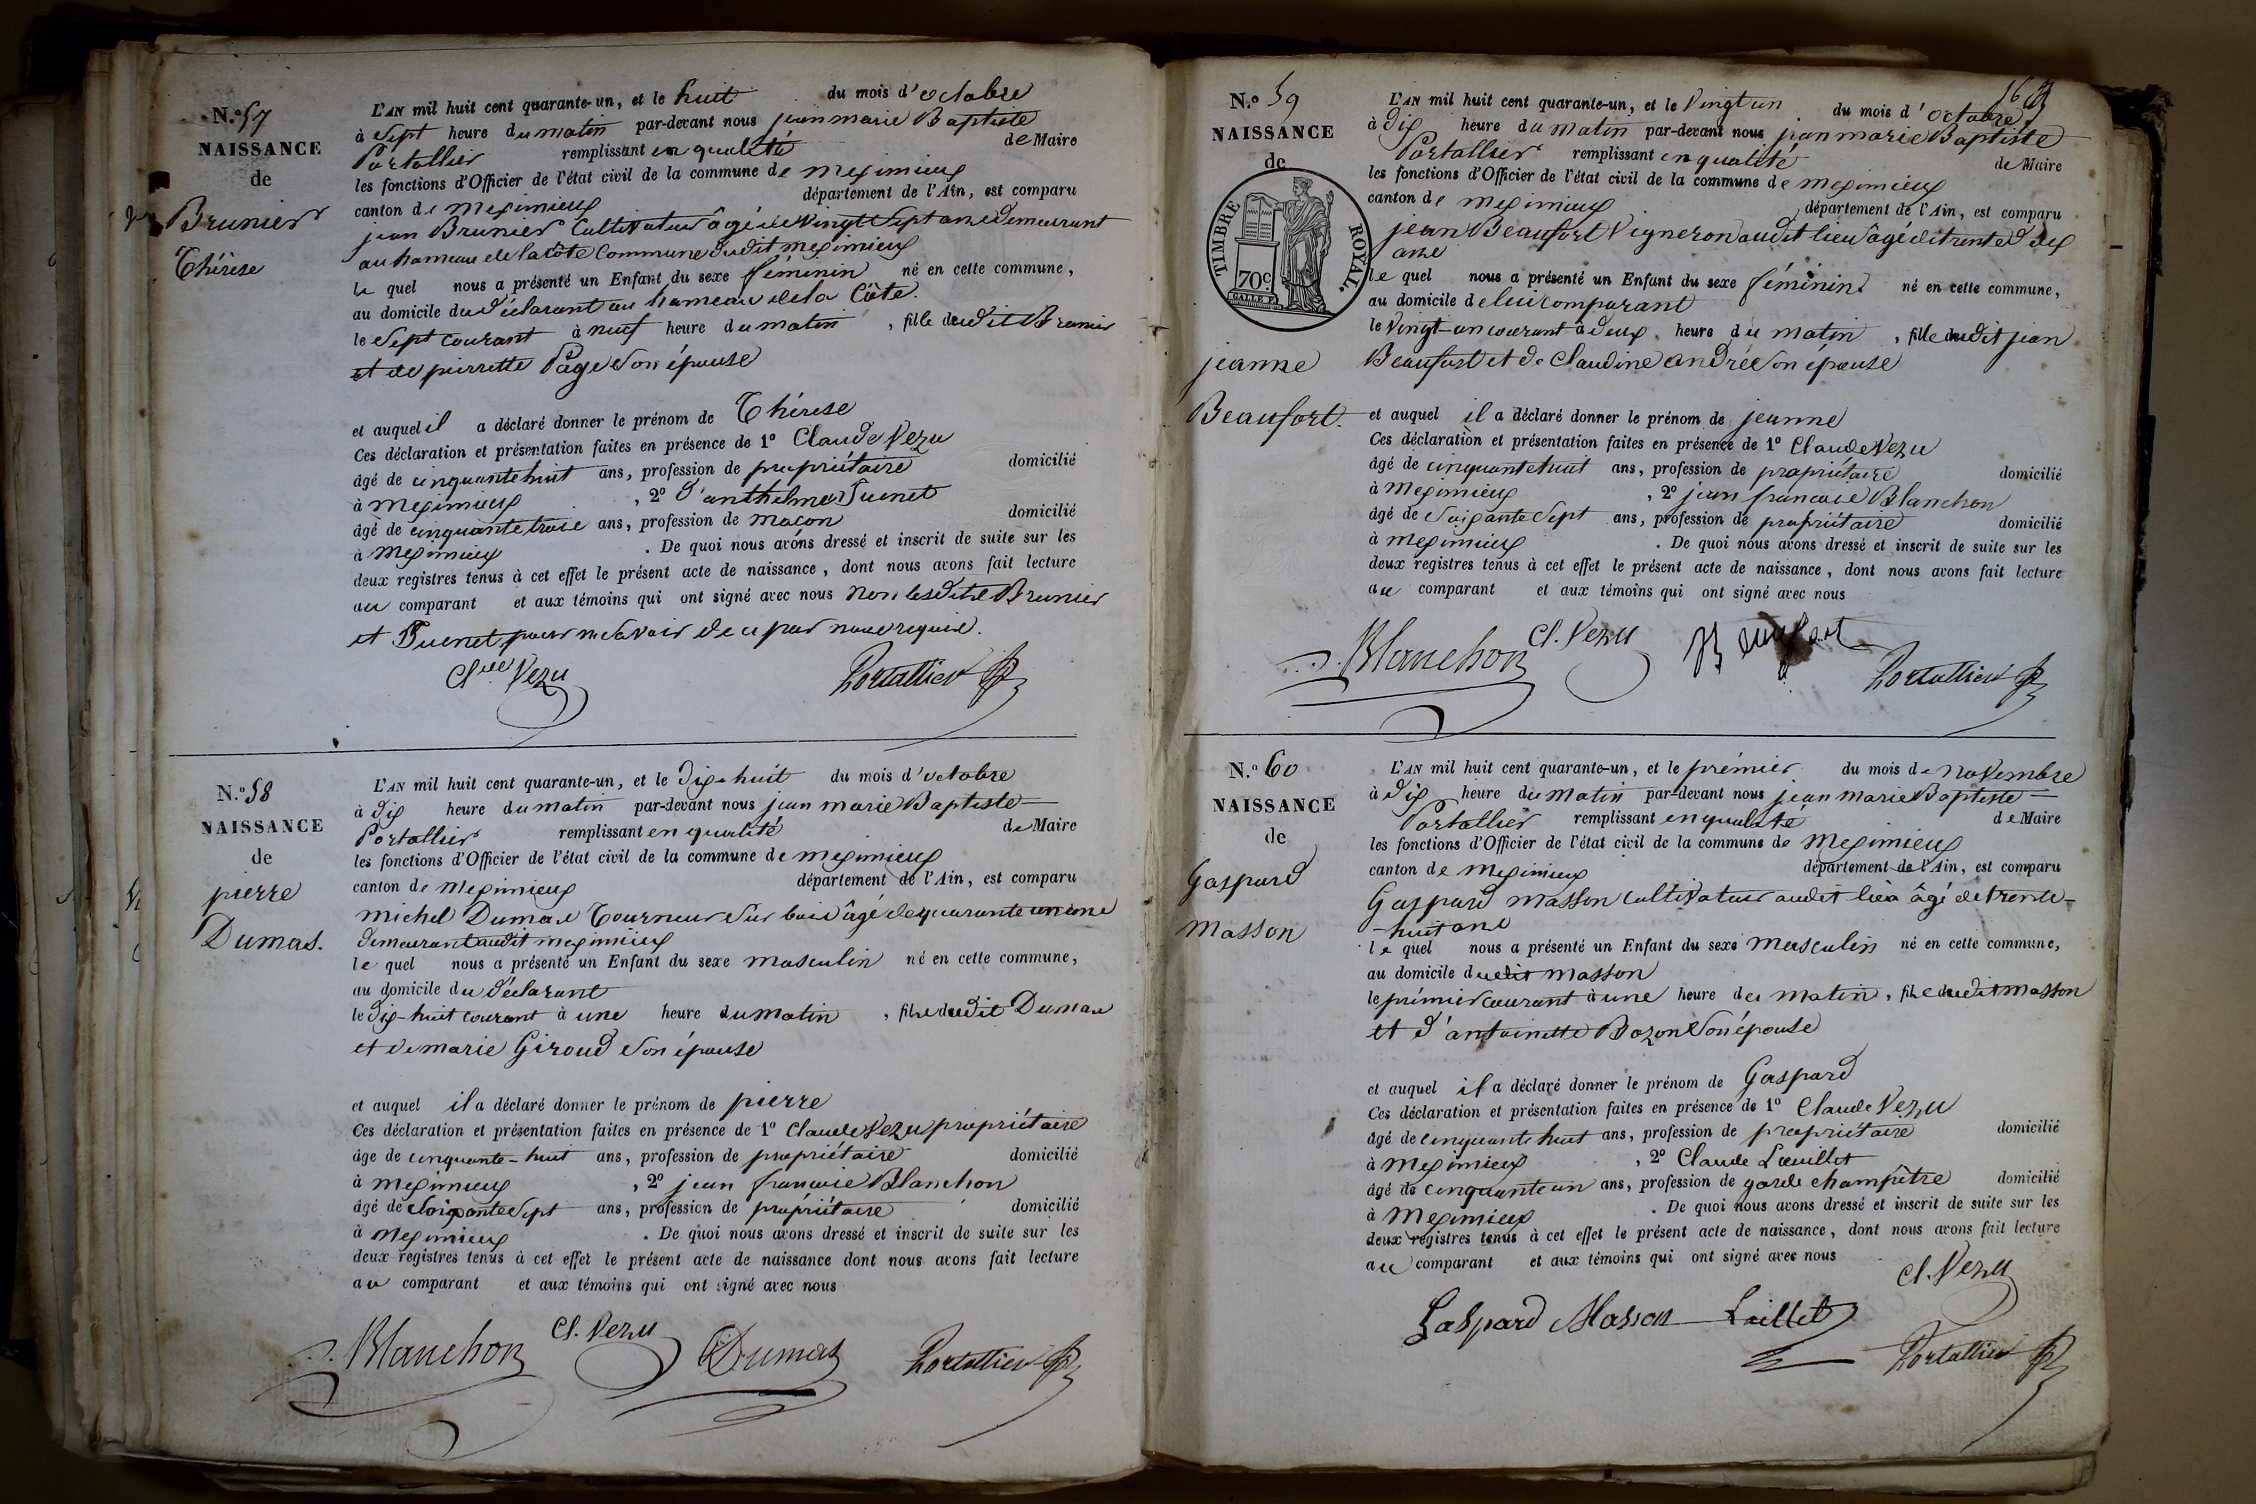 N.º 57
NAISSANCE
de
Brunier
Thérèse
L'AN mil huit cent quarante-un, et le huit du mois d'octobre
à Sept heure du matin par-devant nous jean marie Baptiste
Portallier remplissant en qualité de Maire
les fonctions d'Officier de l'état civil de la commune de meximieux
canton de meximieux département de l'Ain, est comparu
jean Brunier Cultivateur âgé de vingt Sept ans demeurant
au hameau de la Côte Commune dudit meximieux
le quel nous a présenté un Enfant du sexe féminin né en cette commune,
au domicile du déclarant au hameau de la Côte.
le Sept courant à neuf heure du matin, fille dudit Brunier
et de pierrette Page Son épouse
et auquel il a déclaré donner le prénom de Thérese
Ces déclaration et présentation faites en présence de 1º Claude Vezu
âgé de cinquante huit ans, profession de propriétaire domicilié
à meximieux, 2º d'anthelme Suenet
âgé de cinquante trois ans, profession de maçon domicilié
à meximieux. De quoi nous avons dressé et inscrit de suite sur les
deux registres tenus à cet effet le présent acte de naissance, dont nous avons fait lecture
au comparant et aux témoins qui ont signé avec nous non lesdits Brunier
et Suenet pour ne savoir de ce par nous requis.
Cl. Vezu Portallier
N.º 58
NAISSANCE
de
pierre
Dumas.
L'AN mil huit cent quarante-un, et le dix-huit du mois d'octobre
à dix heure du matin par-devant nous jean marie Baptiste
Portallier remplissant en qualité de Maire
les fonctions d'Officier de l'état civil de la commune de meximieux
canton de meximieux département de l'Ain, est comparu
michel Dumas Tourneur Sur bois âgé de quarante un ans
demeurant audit meximieux
le quel nous a présenté un Enfant du sexe masculin né en cette commune,
au domicile du déclarant
le dix-huit courant à une heure du matin, fils dudit Dumas
et de marie Giroud Son épouse
et auquel il a déclaré donner le prénom de pierre
Ces déclaration et présentation faites en présence de 1º Claude Vezu propriétaire
âge de cinquante-huit ans, profession de propriétaire domicilié
à meximieux, 2º jean francois Blanchon
âgé de Soixante Sept ans, profession de propriétaire domicilié
à meximieux. De quoi nous avons dressé et inscrit de suite sur les
deux registres tenus à cet effet le présent acte de naissance dont nous avons fait lecture
au comparant et aux témoins qui ont signé avec nous
Blanchon Cl. Vezu Dumas Portallier
N.º 59
NAISSANCE
de
TIMBRE ROYAL.
70c
jeanne
Beaufort.
L'AN mil huit cent quarante-un, et le Vingt un du mois d'octobre
à dix heure du matin par-devant nous jean marie Baptiste
Portallier remplissant en qualité de Maire
les fonctions d'Officier de l'état civil de la commune de meximieux
canton de meximieux département de l'Ain, est comparu
jean Beaufort Vigneron audit lieu âgé de trente dix
ans
le quel nous a présenté un Enfant du sexe féminin né en cette commune,
au domicile de lui comparant
le Vingt-un courant à deux heure du matin, fille dudit jean
Beaufort et de Claudine andrée Son épouse
et auquel il a déclaré donner le prénom de jeanne
Ces déclaration et présentation faites en présence de 1º Claude Vezu
âgé de cinquante huit ans, profession de propriétaire domicilié
à meximieux, 2º jean francois Blanchon
âgé de Soixante Sept ans, profession de propriétaire domicilié
à meximieux. De quoi nous avons dressé et inscrit de suite sur les
deux registres tenus à cet effet le présent acte de naissance, dont nous avons fait lecture
au comparant et aux témoins qui ont signé avec nous
Blanchon Cl. Vezu Beaufort Portallier
N.º 60
NAISSANCE
de
Gaspard
masson
L'AN mil huit cent quarante-un, et le prémier du mois de novembre
à dix heure du matin par-devant nous jean Marie Baptiste
Portallier remplissant en qualité de Maire
les fonctions d'Officier de l'état civil de la commune de meximieux
canton de meximieux département de l'Ain, est comparu
Gaspard masson Cultivateur audit lieu âgé de trente-
-huit ans
le quel nous a présenté un Enfant du sexe masculin né en cette commune,
au domicile dudit masson
le prémier courant à une heure du matin, fils dudit masson
et d'antoinette Bozon Son épouse
et auquel il a déclaré donner le prénom de Gaspard
Ces déclaration et présentation faites en présence de 1º Claude Vezu
âgé de cinquante huit ans, profession de propriétaire domicilié
à meximieux, 2º Claude Lœuillet
âgé de cinquante un ans, profession de garde champêtre domicilié
à meximieux. De quoi nous avons dressé et inscrit de suite sur les
deux registres tenus à cet effet le présent acte de naissance, dont nous avons fait lecture
au comparant et aux témoins qui ont signé avec nous
Cl. Vezu
Gaspard Masson Lœillet
Portallier